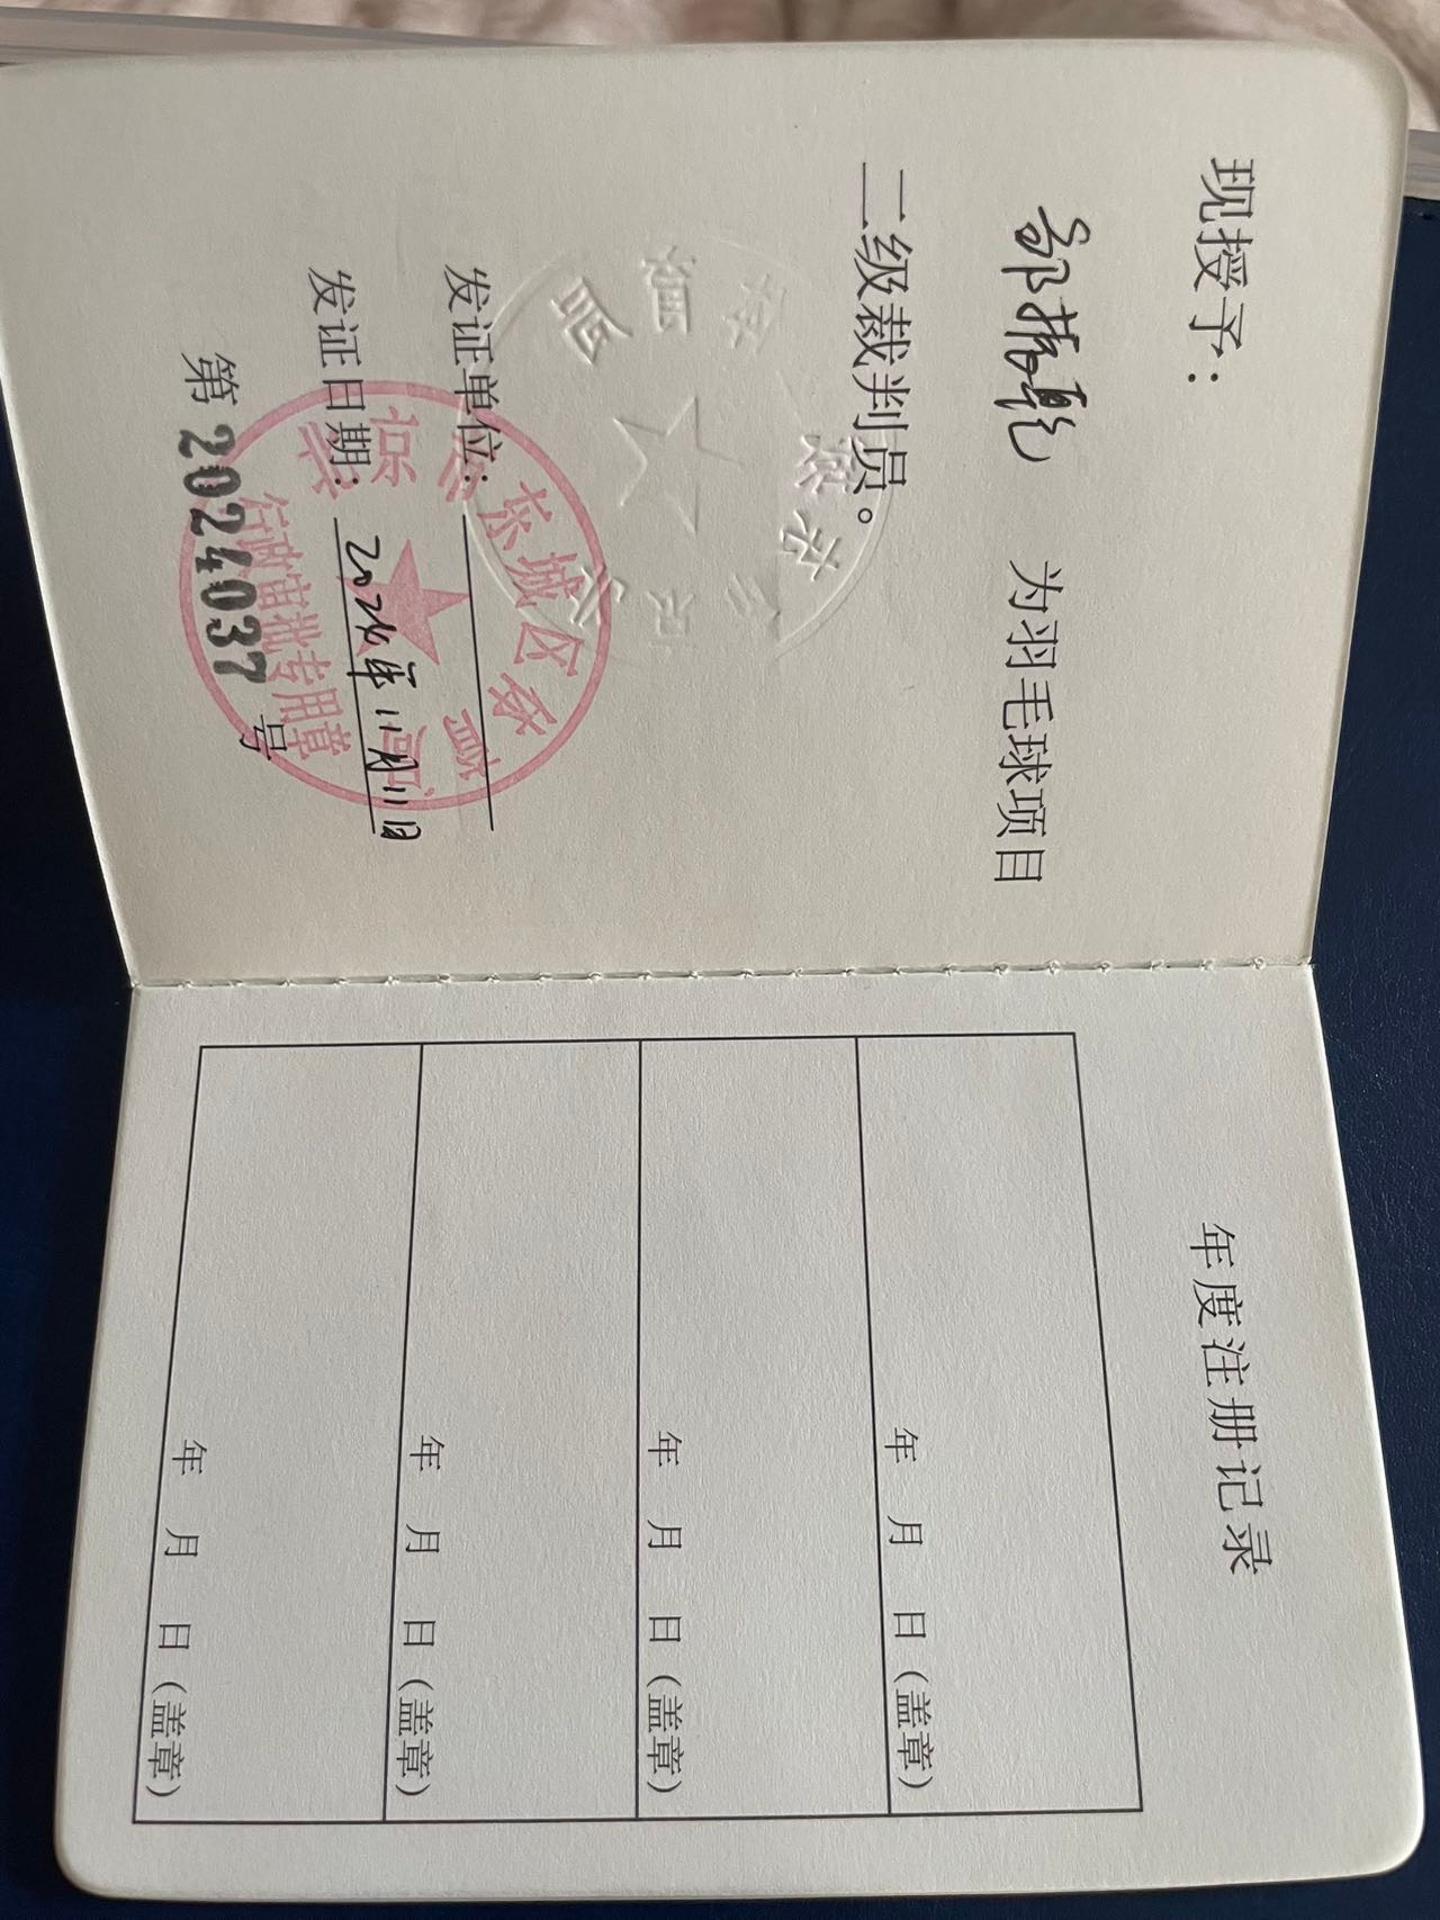 现授予：
郭振乾 为羽毛球项目
二级裁判员。
发证单位：
发证日期：2024年11月11日
第 2024037 号
东城区
行政审批专用章
年度注册记录
年 月 日（盖章）
年 月 日（盖章）
年 月 日（盖章）
年 月 日（盖章）